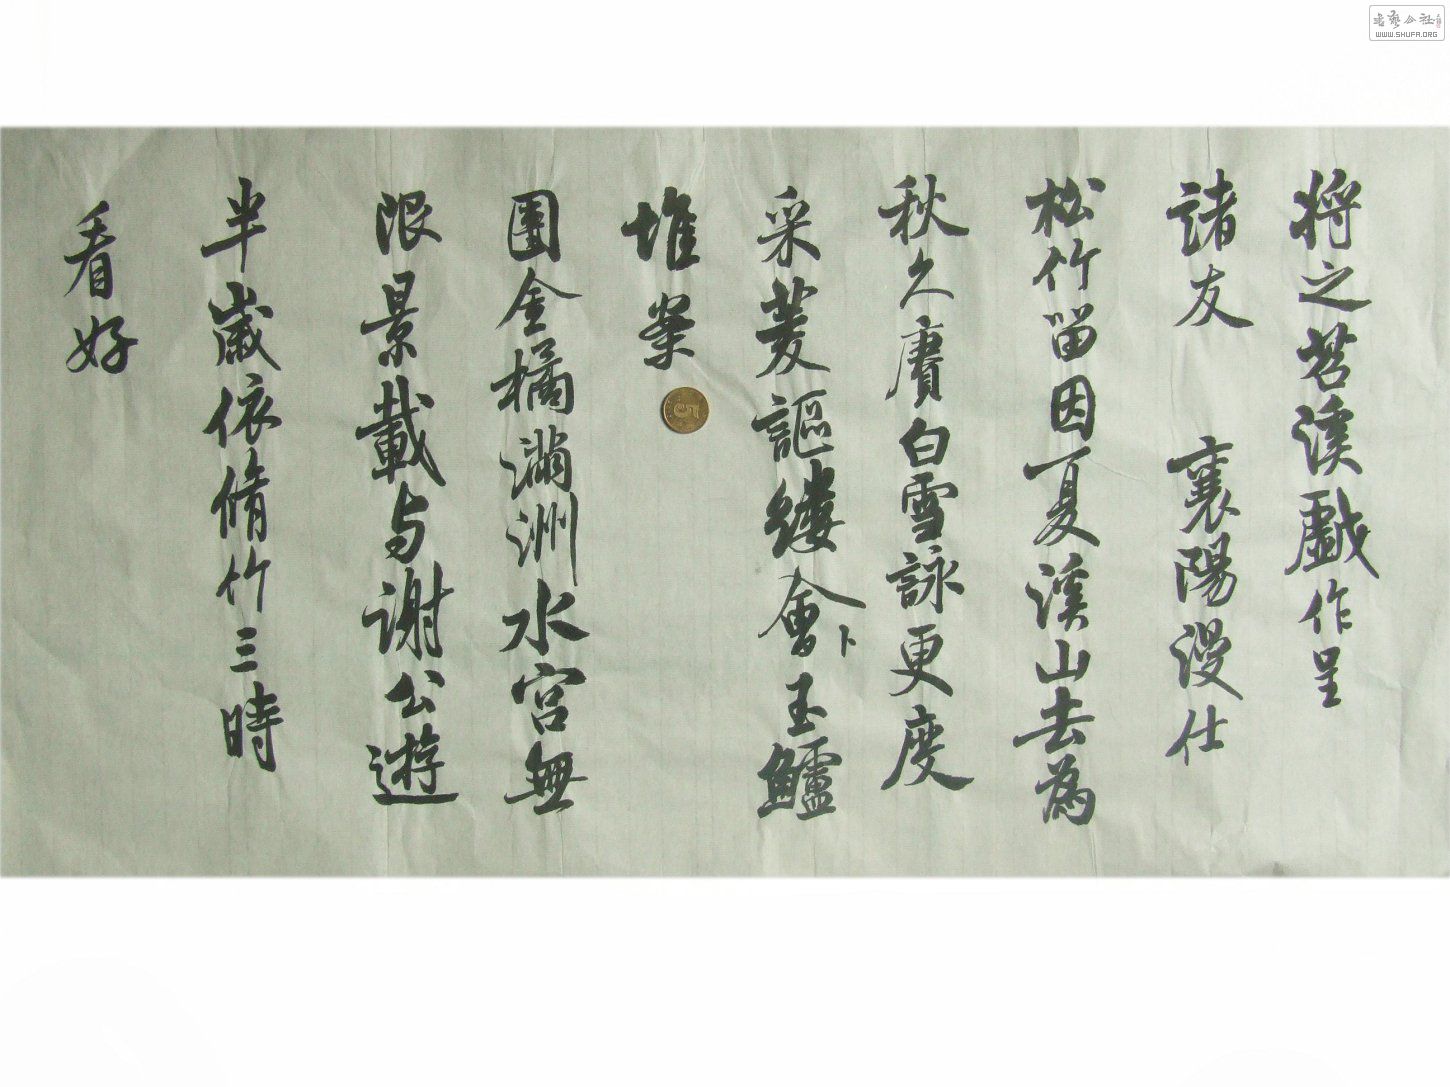 将之苕溪戲作呈
諸友 襄陽漫仕
松竹留因夏溪山去為
秋久賡白雪詠更度
采菱謳縷會卜玉鱸
堆案
團金橘滿洲水宮無
限景載与謝公遊
半歲依脩竹三時
看好
书艺公社
WWW.SHUFA.ORG